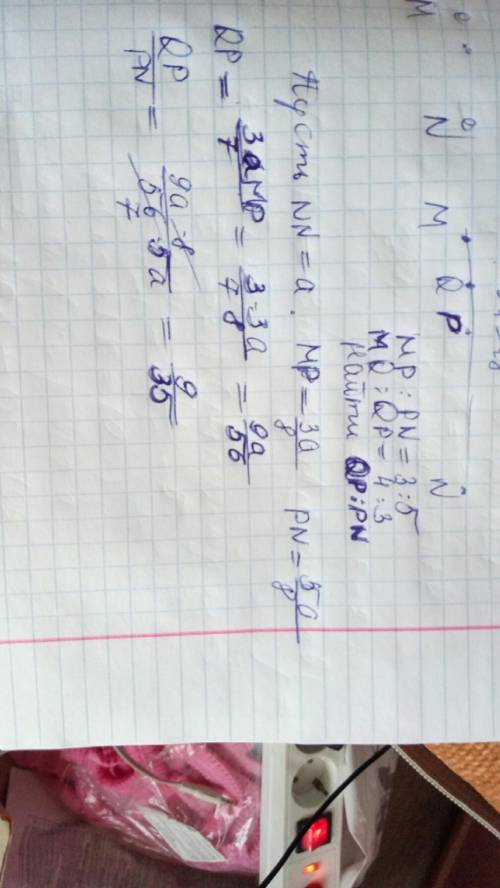 M N
M Q P N
MP : PN = 3 : 5
MQ : QP = 4 : 3
Найти QP : PN
Пусть NN = a. MP = 3a/8 PN = 5a/8
QP = 3/7 MP = 3·3a/7·8 = 9a/56
QP/PN = 9a·8/56·5a = 9/35
7